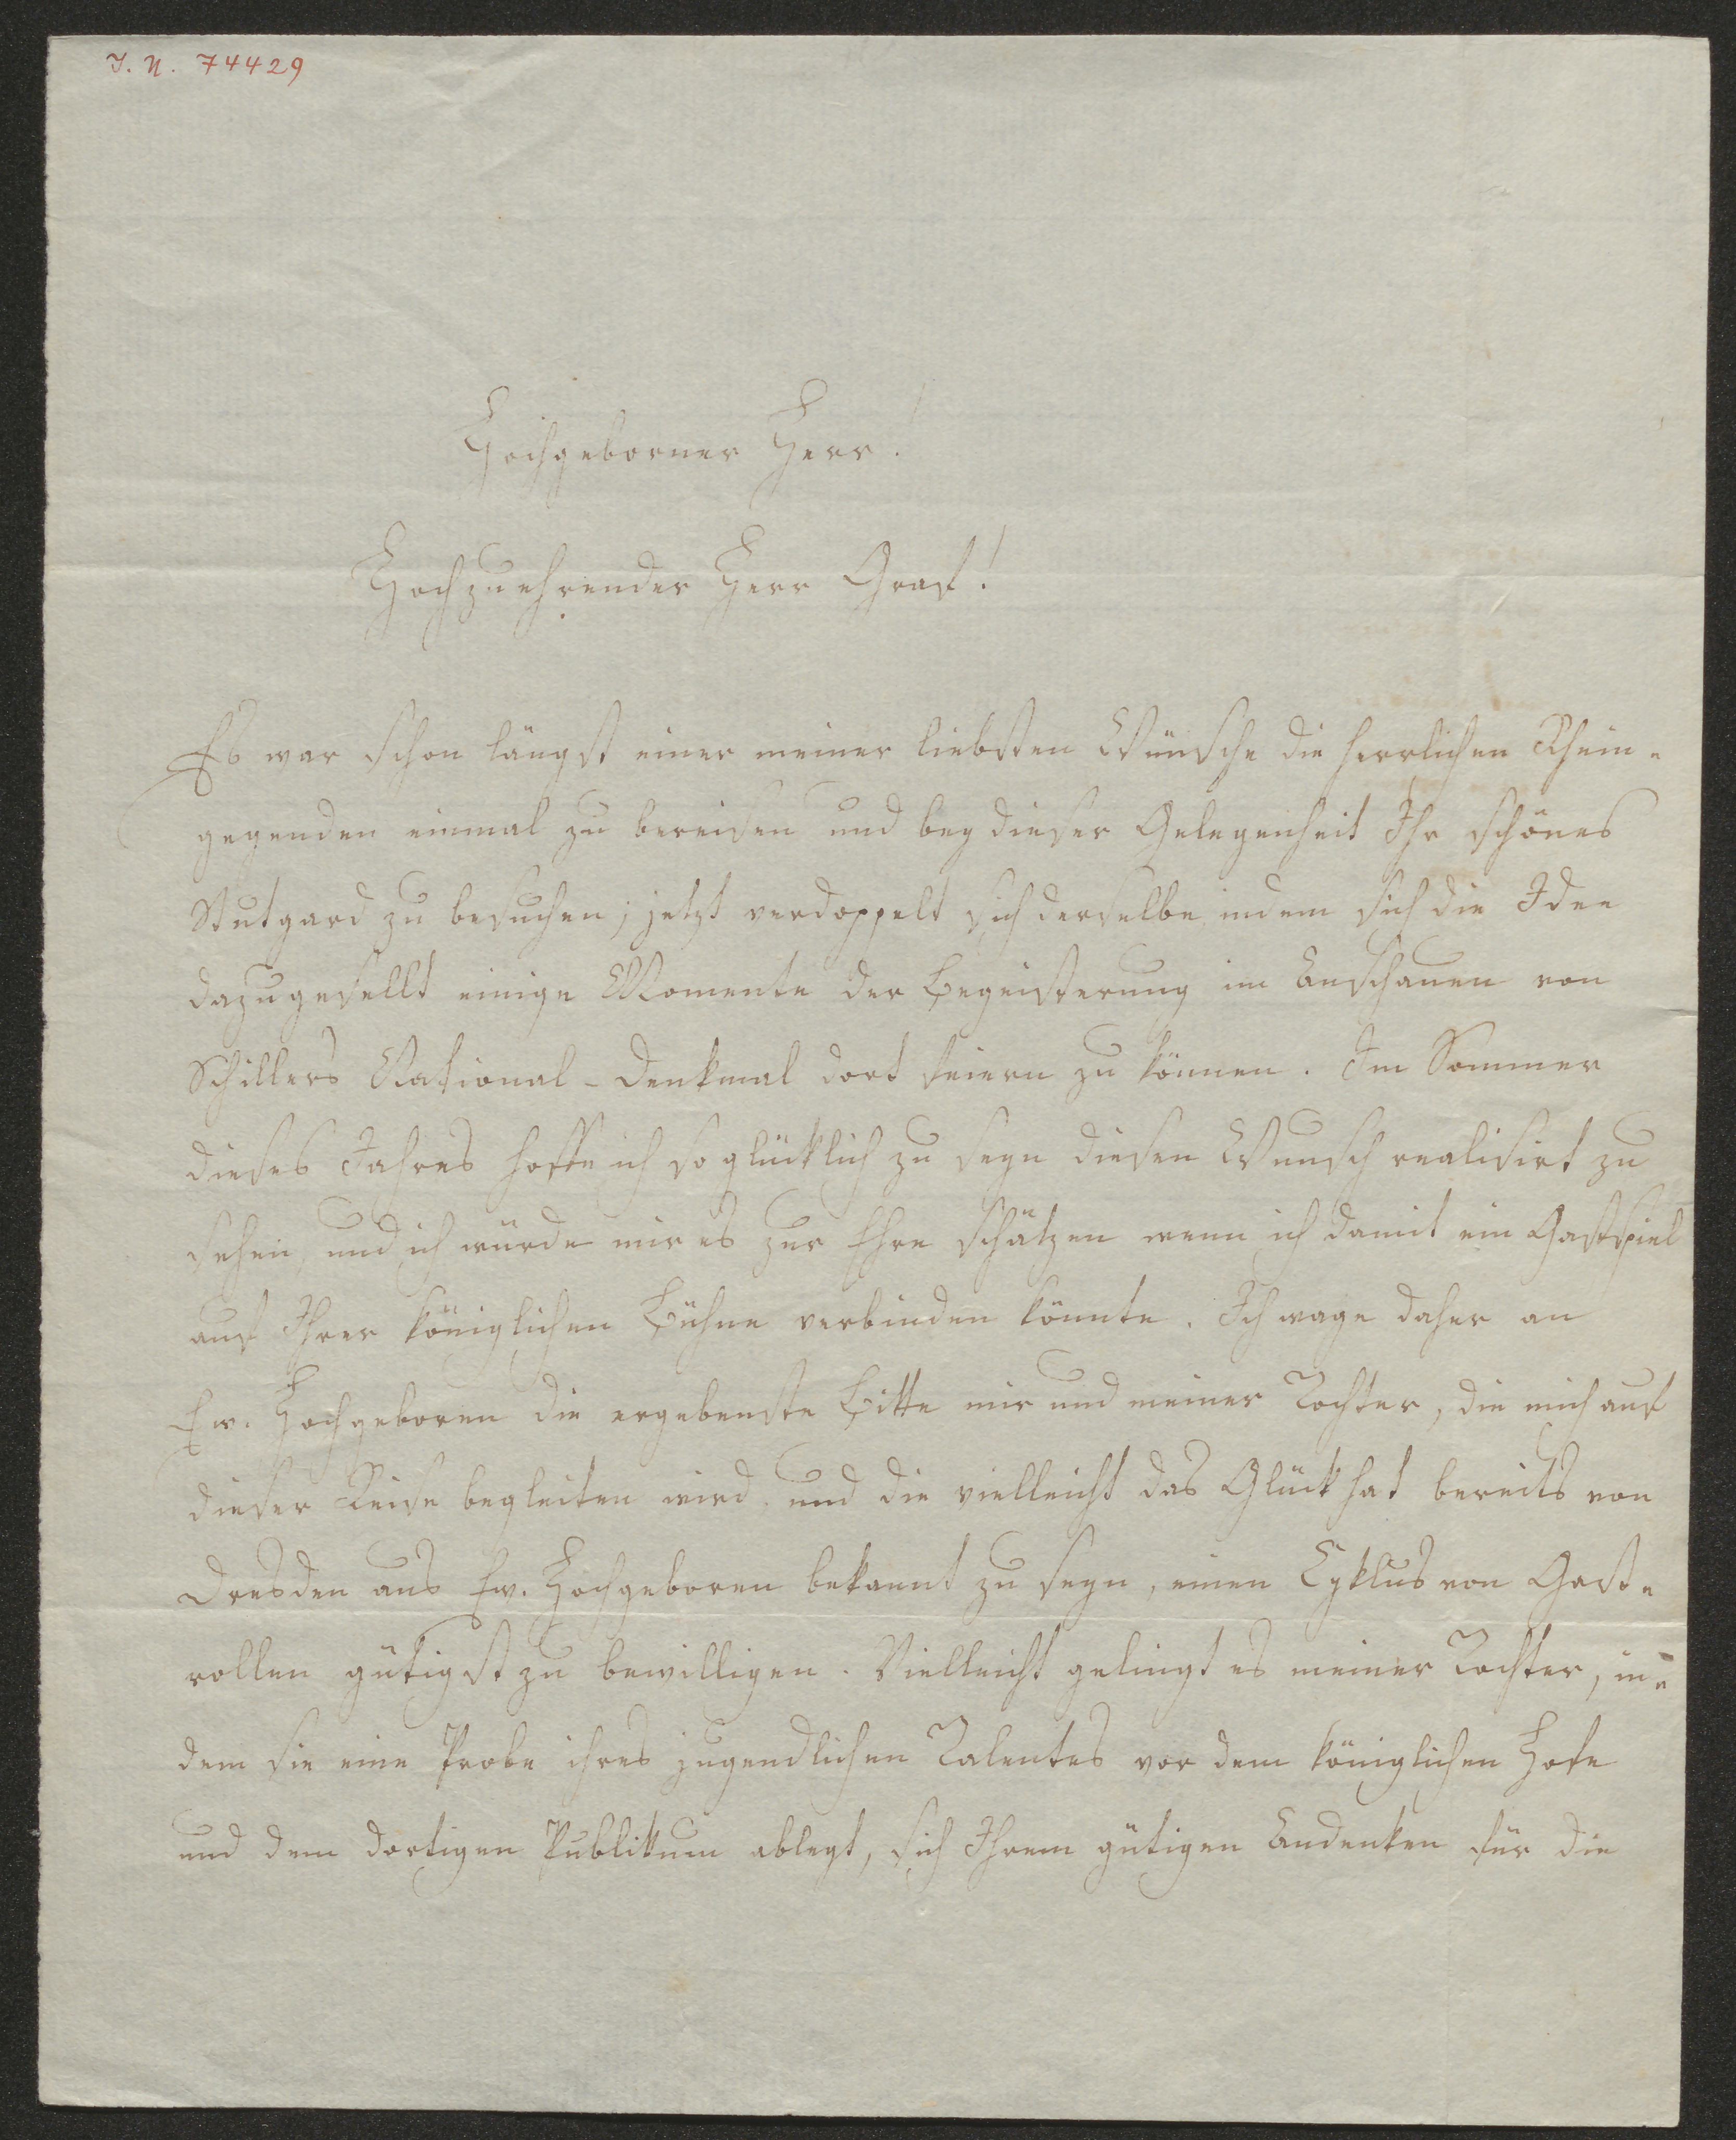 I. N. 74429
Hochgeborner Herr!
Hochzuehrender Herr Graf!
Es war schon längst einer meiner liebsten Wünsche die herrlichen Rhein-
gegenden einmal zu bereisen und bey dieser Gelegenheit Ihr schönes
Stutgard zu besuchen; jetzt verdoppelt sich derselbe indem sich die Idee
dazugesellt einige Momente der Begeisterung im Anschauen von
Schillers National-Denkmal dort feiern zu können. Im Sommer
dieses Jahres hoffe ich so glücklich zu seyn diesen Wunsch realisirt zu
sehen, und ich würde mir es zur Ehre schätzen wenn ich damit ein Gastspiel
auf Ihrer königlichen Bühne verbinden könnte. Ich wage daher an
Ew. Hochgeboren die ergebenste Bitte mir und meiner Tochter, die mich auf
dieser Reise begleiten wird, und die vielleicht das Glück hat bereits von
Dresden aus Ew. Hochgeboren bekannt zu seyn, einen Cyklus von Gast-
rollen gütigst zu bewilligen. Vielleicht gelingt es meiner Tochter, in-
dem sie eine Probe ihres jugendlichen Talentes vor dem königlichen Hofe
und dem dortigen Publikum ablegt, sich Ihrem gütigen Andenken für die